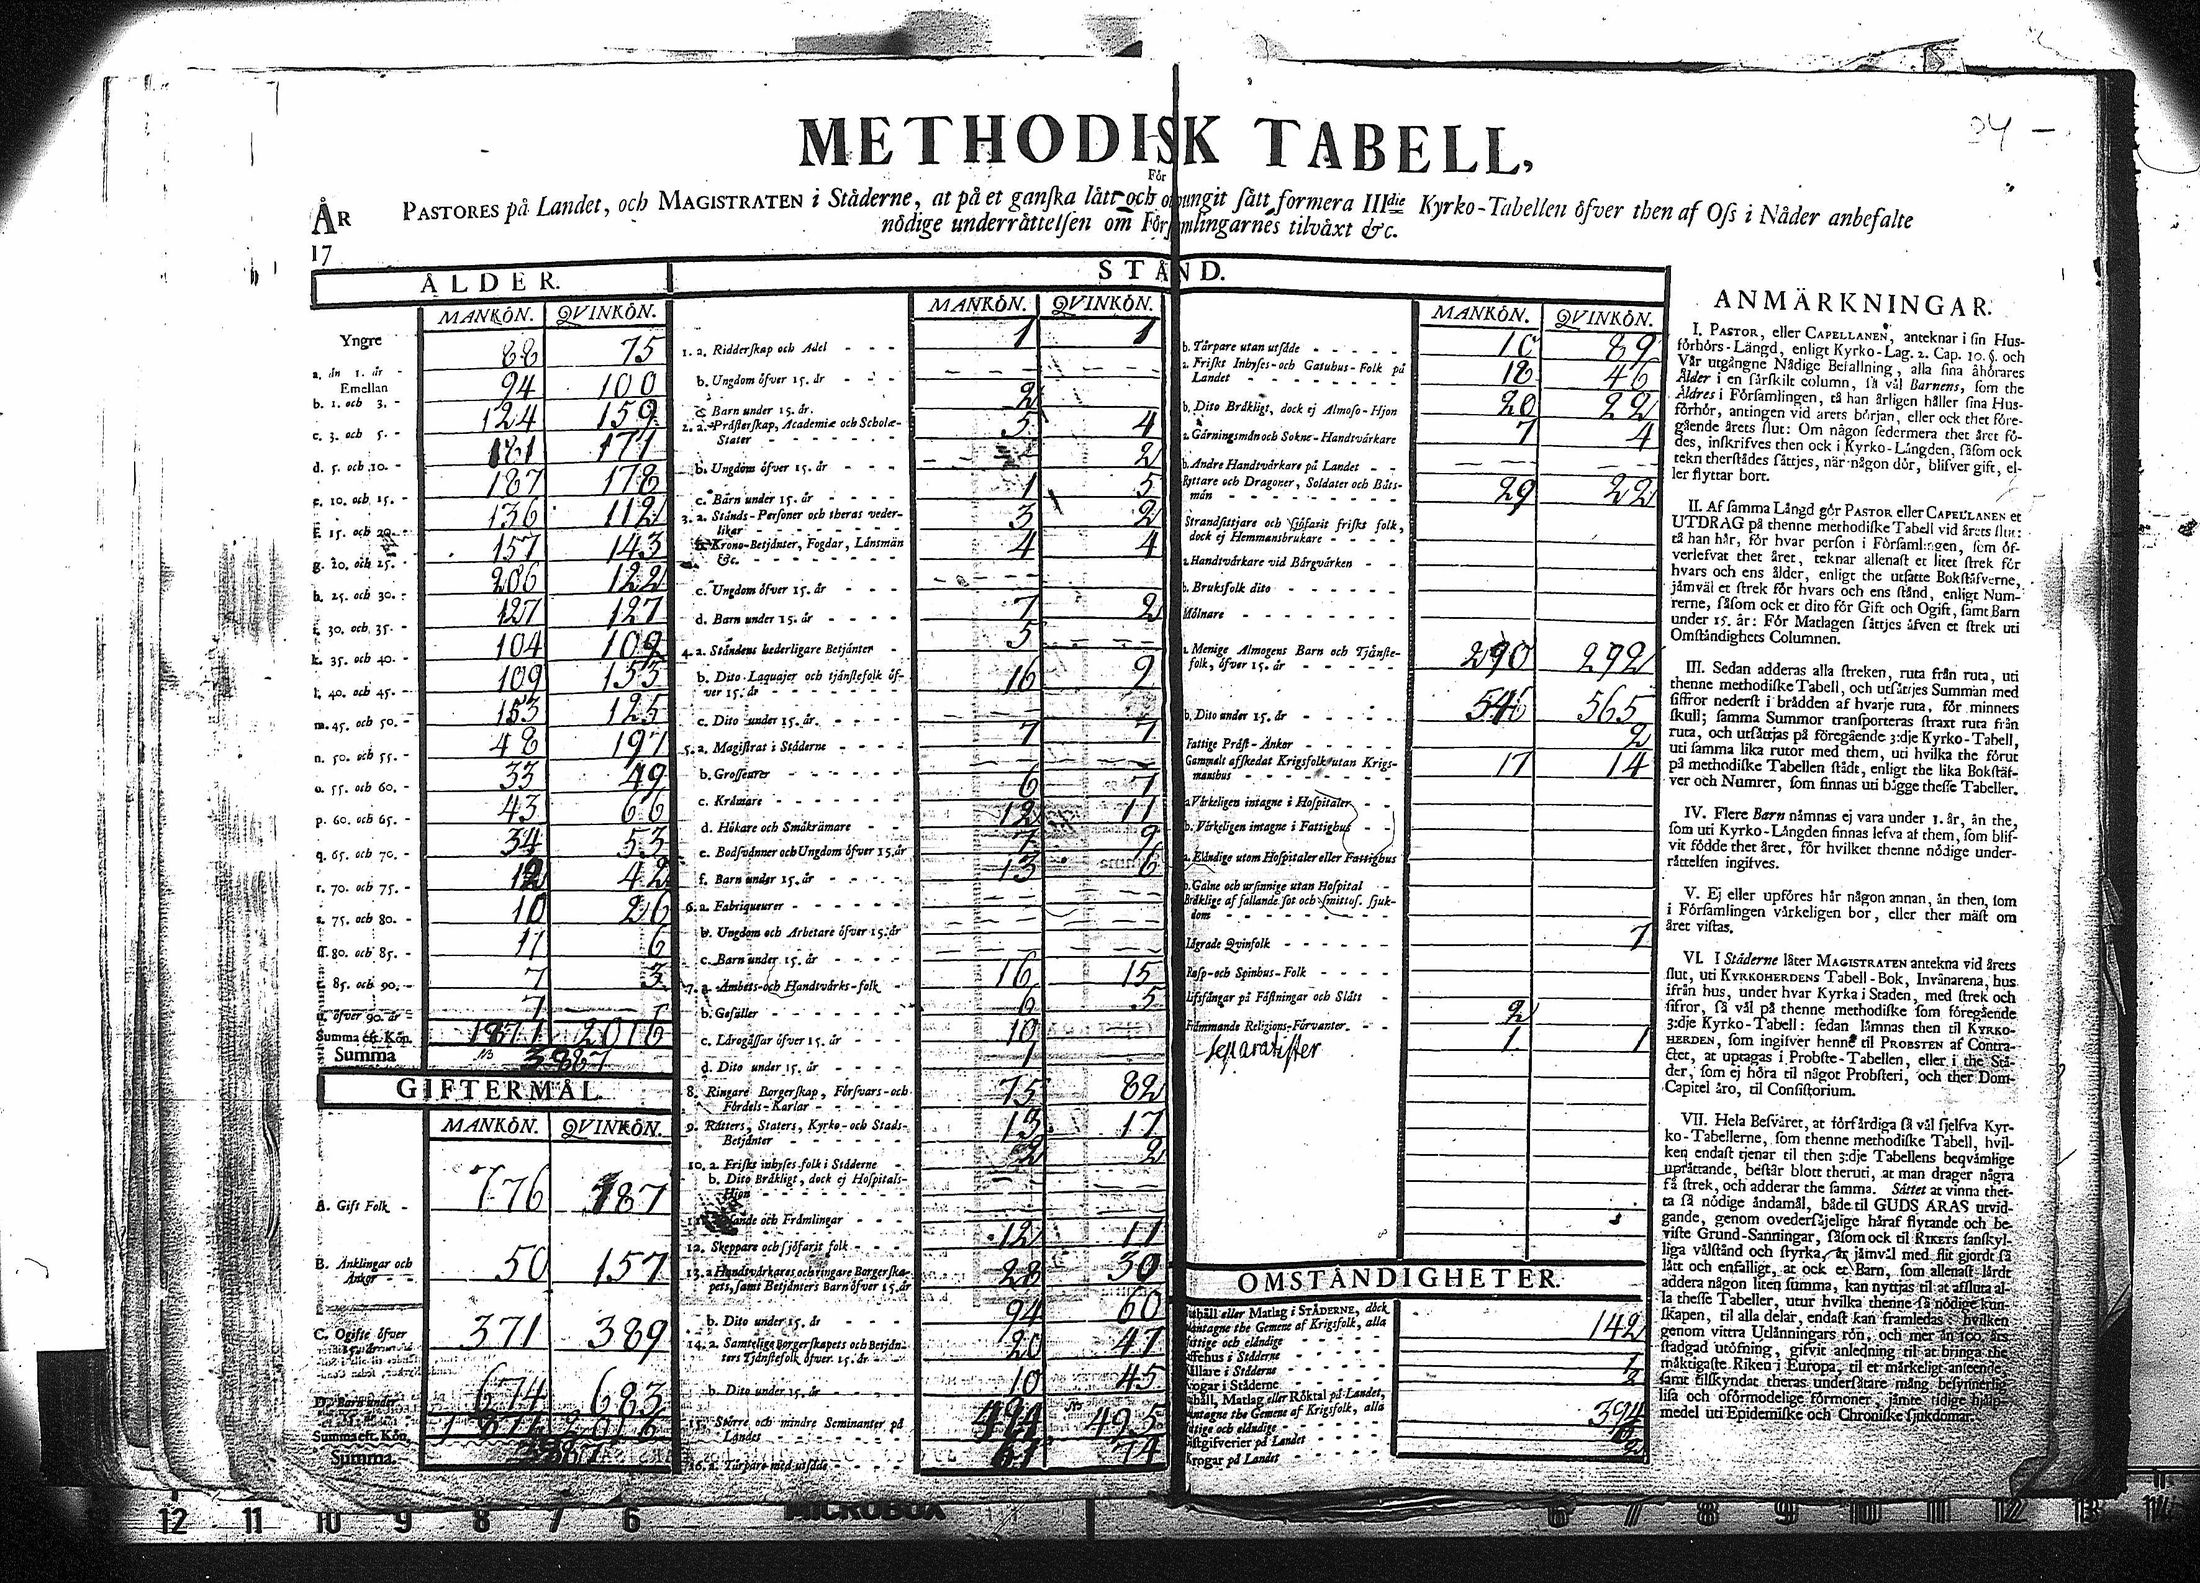 METHODISK TABELL,
För
ÅR PASTORES på Landet, och MAGISTRATEN i Städerne, at på et ganska lätt och otvungit sätt formera IIIdie Kyrko-Tabellen öfver then af Oss i Nåder anbefalte
nödige underrättelsen om Församlingarnes tilväxt &c.
17
ÅLDER.
MANKÖN. QVINKÖN.
Yngre
a. än 1. år - 88 75
Emellan
b. 1. och 3. - 94 100
c. 3. och 5. - 124 159
d. 5. och 10. - 181 171
e. 10. och 15. - 187 178
f. 15. och 20. - 136 112
g. 20. och 25. - 157 143
h. 25. och 30. - 206 122
i. 30. och 35. - 127 127
k. 35. och 40. - 104 109
l. 40. och 45. - 109 153
m. 45. och 50. - 153 125
n. 50. och 55. - 48 197
o. 55. och 60. - 33 49
p. 60. och 65. - 43 66
q. 65. och 70. - 34 53
r. 70. och 75. - 12 42
s. 75. och 80. - 10 26
ss. 80. och 85. - 11 6
t. 85. och 90. - 7 3
u. öfver 90. år - 7
Summa eft. Kön. 1871 2016
Summa 3887
GIFTERMÅL.
MANKÖN. QVINKÖN.
A. Gift Folk - 776 787
B. Änklingar och
Änkor - - 50 157
C. Ogifte öfver
371 389
D. Barn under
674 683
Summa eft. Kön. 1871 2016
Summa. 3887
STÅND.
MANKÖN. QVINKÖN.
1. a. Ridderskap och Adel - - - 1 1
b. Ungdom öfver 15. år - - -
c. Barn under 15. år. 2
2. a. Prästerskap, Academiæ och Scholæ-
Stater - - - - - - - 5 4
b. Ungdom öfver 15. år - - - 2
c. Barn under 15. år - - - - 1 5
3. a. Stånds-Personer och theras veder-
likar - - - - - - - 3 2
b. Krono-Betjänter, Fogdar, Länsmän
&c. - - - - - - - 4 4
c. Ungdom öfver 15. år - - - -
d. Barn under 15. år - - - - 7 2
4. a. Ståndens hederligare Betjänter - 5
b. Dito Laquajer och tjänstefolk öf-
ver 15. år - - - - - - 16 9
c. Dito under 15. år. - - - -
5. a. Magistrat i Städerne - - - - 7 7
b. Grosseurer - - - - - - 6 7
c. Krämare - - - - - - 12 11
d. Hökare och Småkrämare - - 7 9
e. Bodsvänner och Ungdom öfver 15. år 13 6
f. Barn under 15. år - - - -
6. a. Fabriqueurer - - - - -
b. Ungdom och Arbetare öfver 15. år
c. Barn under 15. år - - - -
7. a. Ämbets- och Handtvärks-folk - 16 15
b. Gesäller - - - - - - 6 5
c. Lärogåssar öfver 15. år - - - 10
d. Dito under 15. år - - - - 1
8. Ringare Borgerskap, Försvars- och
Fördels-Karlar - - - - - 75 82
9. Rätters, Staters, Kyrko- och Stads-
Betjänter - - - - - - 13 17
10. a. Friskt inhyses folk i Städerne - 2 2
b. Dito Bräkligt, dock ej Hospitals-
Hjon - - - - - - -
och Främlingar - - -
12. Skeppare och sjöfarit folk - - - 12 11
13. a. Handtvärkares och ringare Borgerska-
pets, samt Betjänters Barn öfver 15. år 28 30
b. Dito under 15. år - - - - 94 60
14. a. Samtelige Borgerskapets och Betjän-
ters Tjänstefolk öfver 15. år - - 20 47
b. Dito under 15. år - - - - 10 45
15. Större och mindre Seminanter på
Landet - - - - - - 494 495
16. a. Torpare med utsäde - - - - 61 74
MANKÖN. QVINKÖN.
b. Torpare utan utsäde - - - - - 10 89
a. Friskt Inhyses- och Gatuhus-Folk på
Landet - - - - - - - 18 46
b. Dito Bräkligt, dock ej Almoso-Hjon 20 22
a. Gärningsmän och Sokne-Handtvärkare 7 4
b. Andre Handtvärkare på Landet - -
Ryttare och Dragoner, Soldater och Båts-
män - - - - - - - - 29 22
Strandsittjare och sjöfarit friskt folk,
dock ej Hemmansbrukare - - - -
a. Handtvärkare vid Bärgvärken - -
b. Bruksfolk dito - - - - - -
Mölnare - - - - - - - -
a. Menige Almogens Barn och Tjänste-
folk, öfver 15. år - - - - - 290 292
b. Dito under 15. år - - - - - 546 565
Fattige Präst-Änkor - - - - - 2
Gammalt afskedat Krigsfolk utan Krigs-
manshus - - - - - - - 17 14
a. Värkeligen intagne i Hospitaler - -
b. Värkeligen intagne i Fattighus - -
a. Eländige utom Hospitaler eller Fattighus
b. Galne och ursinnige utan Hospital -
Bräklige af fallande sot och smittos. sjuk-
dom - - - - - - - -
Lägrade Qvinfolk - - - - - - 7
Rasp- och Spinhus-Folk - - - -
Lifsfångar på Fästningar och Slått - 2
Främmande Religions-Förvanter. - - 1 1
Separatister
OMSTÄNDIGHETER.
Hushåll eller Matlag i STÄDERNE, dock
undantagne the Gemene af Krigsfolk, alla
fattige och eländige 142
i Städerne - - - -
Källare i Städerne - - - - 1
Krogar i Städerne - - - - 2
Hushåll, Matlag eller Röktal på Landet,
undantagne the Gemene af Krigsfolk, alla
fattige och eländige 394
Gästgifverier på Landet - - -
Krogar på Landet - - - - 2
ANMÄRKNINGAR.
I. PASTOR, eller CAPELLANEN, anteknar i sin Hus-
förhörs-Längd, enligt Kyrko-Lag. 2. Cap. 10. §. och
Vår utgångne Nådige Befallning, alla sina åhörares
Ålder i en särskilt column, så väl Barnens, som the
Äldres i Församlingen, tå han årligen håller sina Hus-
förhör, antingen vid årets början, eller ock thet före-
gående årets slut: Om någon sedermera thet året fö-
des, inskrifves then ock i Kyrko-Längden, såsom ock
tekn therstädes sättjes, när någon dör, blifver gift, el-
ler flyttar bort.
II. Af samma Längd gör PASTOR eller CAPELLANEN et
UTDRAG på thenne methodiske Tabell vid årets slut:
tå han här, för hvar person i Församlingen, som öf-
verlefvat thet året, teknar allenast et litet strek för
hvars och ens ålder, enligt the utsatte Bokstäfverne,
jämväl et strek för hvars och ens stånd, enligt Num-
rerne, såsom ock et dito för Gift och Ogift, samt Barn
under 15. år: För Matlagen sättjes äfven et strek uti
Omständighets Columnen.
III. Sedan adderas alla streken, ruta från ruta, uti
thenne methodiske Tabell, och utsättjes Summan med
siffror nederst i brädden af hvarje ruta, för minnets
skull; samma Summor transporteras straxt ruta från
ruta, och utsättjas på föregående 3:dje Kyrko-Tabell,
uti samma lika rutor med them, uti hvilka the förut
på methodiske Tabellen städt, enligt the lika Bokstäf-
ver och Numrer, som finnas uti bägge thesse Tabeller.
IV. Flere Barn nämnas ej vara under 1. år, än the,
som uti Kyrko-Längden finnas lefva af them, som blif-
vit födde thet året, för hvilket thenne nödige under-
rättelsen ingifves.
V. Ej eller upföres här någon annan, än then, som
i Församlingen värkeligen bor, eller ther mäst om
året vistas.
VI. I Städerne låter MAGISTRATEN antekna vid årets
slut, uti KYRKOHERDENS Tabell-Bok, Invånarena, hus
ifrån hus, under hvar Kyrka i Staden, med strek och
sifror, så väl på thenne methodiske som föregående
3:dje Kyrko-Tabell: sedan lämnas then til KYRKO-
HERDEN, som ingifver henne til PROBSTEN af Contra-
ctet, at uptagas i Probste-Tabellen, eller i the Stä-
der, som ej höra til något Probsteri, och ther Dom-
Capitel äro, til Consistorium.
VII. Hela Besväret, at förfärdiga så väl sjelfva Kyr-
ko-Tabellerne, som thenne methodiske Tabell, hvil-
ken endast tjenar til then 3:dje Tabellens beqvämlige
uprättande, består blott theruti, at man drager några
få strek, och adderar the samma. Sättet at vinna thet-
ta så nödige ändamål, både til GUDS ÄRAS utvid-
gande, genom ovedersäjelige häraf flytande och be-
viste Grund-Sanningar, såsom ock til RIKETS sanskyl-
liga välstånd och styrka, är jämväl med flit gjordt så
lätt och enfalligt, at ock et Barn, som allenast lärdt
addera någon liten summa, kan nyttjas til at afsluta al-
la thesse Tabeller, utur hvilka thenne så nödige kun-
skapen, til alla delar, endast kan framledas: hvilken
genom vittra Utlänningars rön, och mer än 100. års
stadgad utöfning, gifvit anledning til at bringa the
mäktigaste Riken i Europa, til et märkeligt anseende,
samt tilskyndat theras undersåtare mång besynnerlig
lisa och oförmodelige förmoner, jämte tidige hjälp-
medel uti Epidemiske och Chroniske sjukdomar.
12 11 10 9 8 7 6 MICROBOX 6 7 8 9 10 11 12 13 14